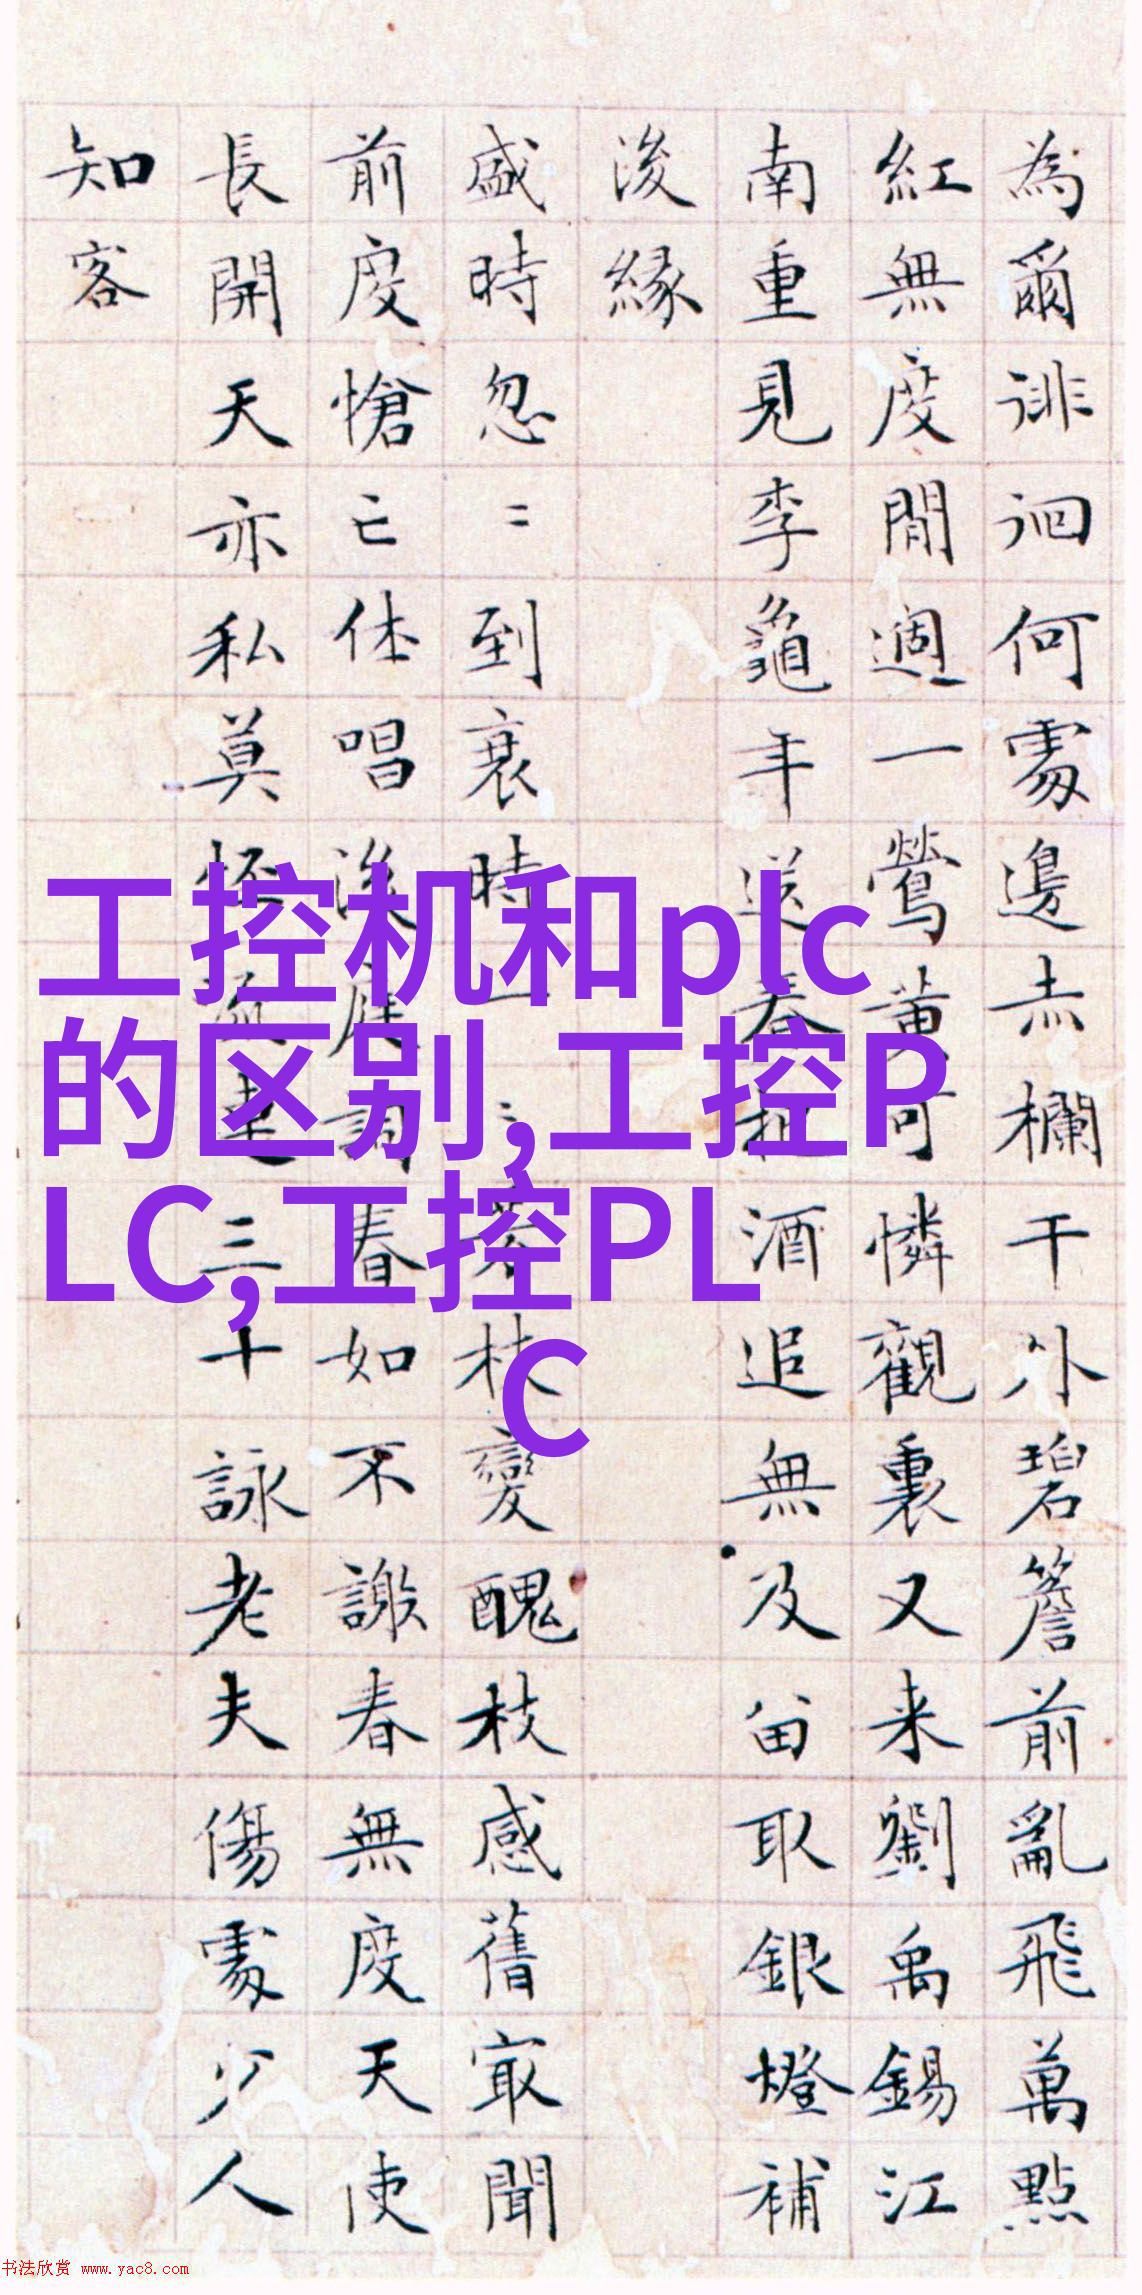 為爾徘徊何處邊赤欄干外碧簷前亂飛萬點
紅無度閒週一鶯黄可憐觀裏又来劉禹錫江
南重見李龜年送春把酒追無及留取銀燈補
後緣
盛時忽〻到衰時一〻芳枝變醜枝感舊最聞
前度愴亡休唱後庭詞春如不謝春無度天使
長開天亦私莫怪連三十詠老夫傷處少人
知客
工控机和plc
的区别,工控P
LC,工控PL
C
书法欣赏 www.yac8.com